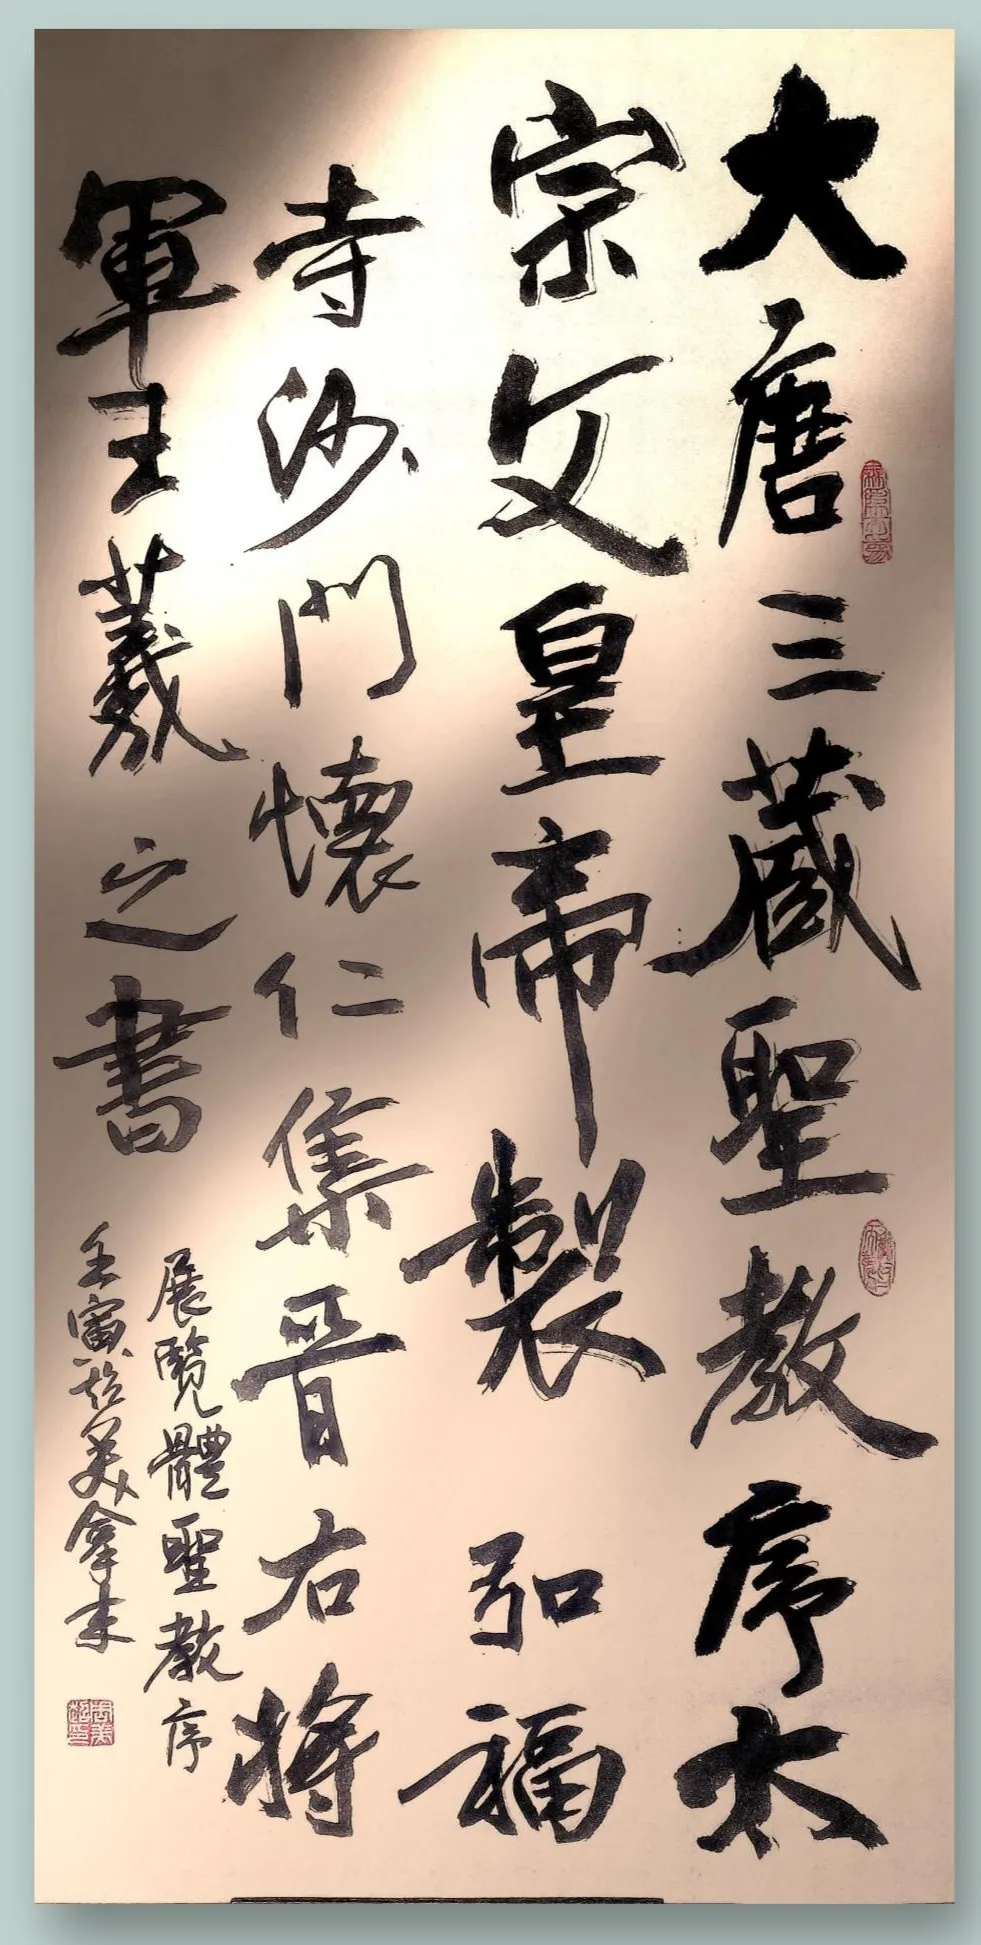 大唐三藏聖教序太
宗文皇帝製弘福
寺沙門懷仁集晉右將
軍王羲之書
展覽體聖教序
壬寅 美拿來